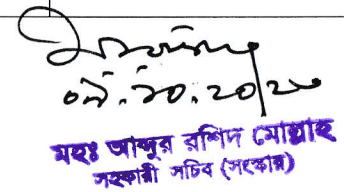 ০৯.১০.২০২০
মহঃ আব্দুর রশিদ মোল্লাহ
সহকারী সচিব (সংস্কার)